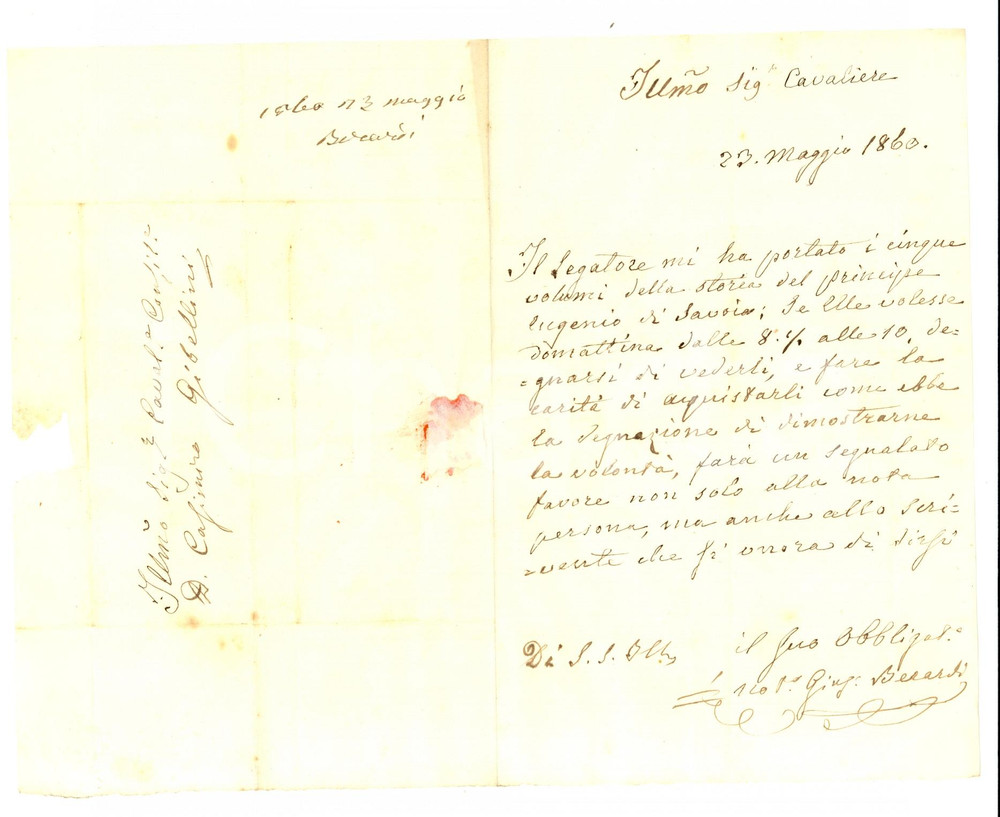 1860 23 maggio
Berardi
Illmõ Sigʳ Cavˡᵉ Consigˡ.ᵉ
D. Casimiro Gibellini
Illmõ Sigʳ Cavaliere
23. Maggio 1860.
Il Legatore mi ha portato i cinque
volumi della storia del principe
Eugenio di Savoia; Se Elle volesse
domattina dalle 8. ½ alle 10, de=
=gnarsi di vederli, e fare la
carità di acquistarli come ebbe
la degnazione di dimostrarne
la volontà, farà un segnalato
favore non solo alla nota
persona, ma anche allo scri=
=vente che si onora di dirsi
Di S. S. Ill.
il suo Obbligat.º
not.º Gius.ᵉ Berardi